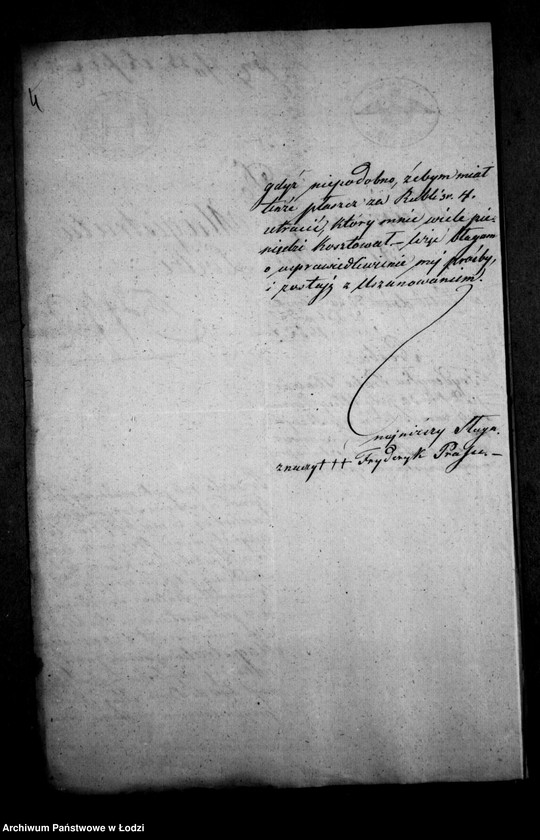 4
gdyż niepodobno, żebym miał
tenże płaszcz za Rubli sr. 4.
utracić, który mnie wiele pie-
niędzi kosztował. – Więc błagam
o usprawiedliwienie mej prośby,
i zostaję z Uszanowaniem!
najniższy Sługa.
znaczył +++ Fryderyk
Archiwum Państwowe w Łodzi